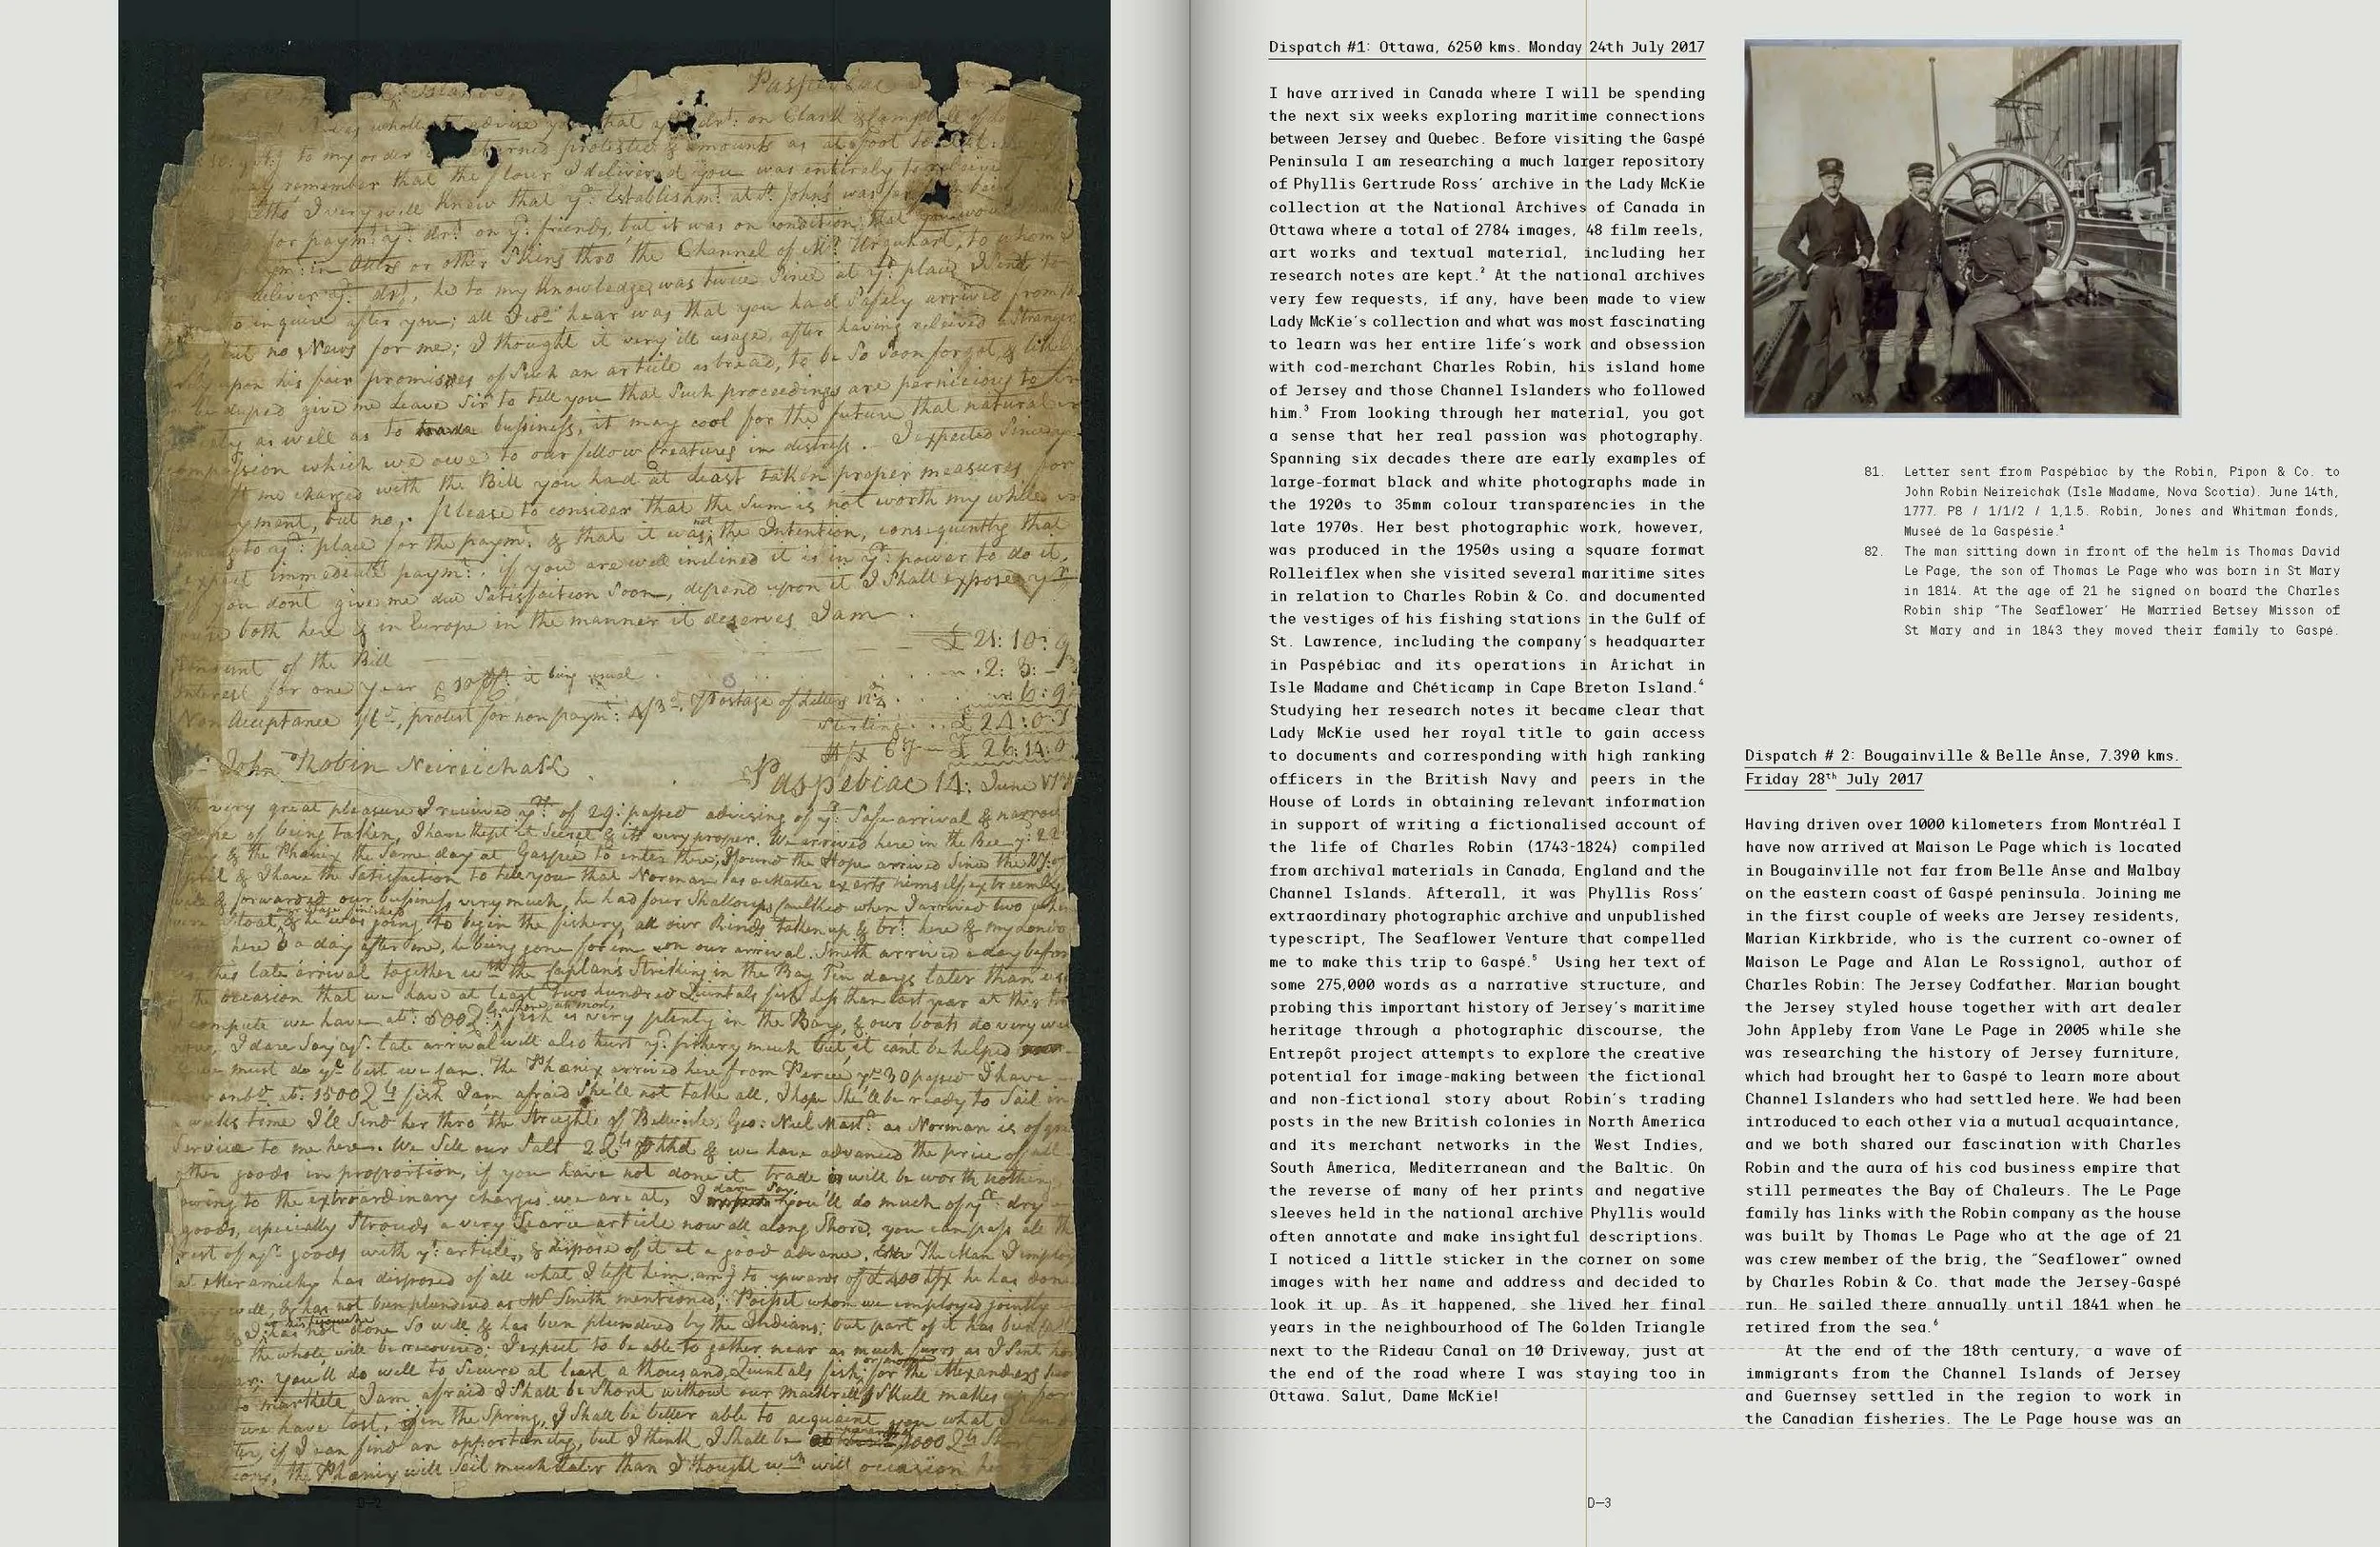 Paspebiac
advise you that on Clark & Campbell
to my order protested & amounts as at foot
remember that the flour I delivered you was entirely to
tho' I very well knew that yr. Establishmt. at St. Johns was
for paymt. on yr. friends, but it was on condition that you
in or other Skins thro the Channel of Mr. Urquhart, to whom I
deliver yr. drt., he to my knowledge, was twice Since at yr. place
inquire after you; all I cod. hear was that you had Safely arrived from
but no News for me; I thought it very ill usage, after having relieved a Stranger
upon his fair promises of Such an article as bread, to be So Soon forgot, &
be duped give me Leave Sir to tell you that Such proceedings are pernicious to
as well as to bussiness, it may cool for the future that natural
compassion which we owe to our fellow Creatures in distress. I expected Since
me charged with the Bill you had at Least taken proper measures for
payment, but no. please to consider that the Sum is not worth my while
to yr. place for the paymt. & that it was not the Intention, consequently that
expect immediate paymt. if you are well inclined it is in yr. power to do it,
you dont give me due Satisfaction Soon, depend upon it I Shall expose yr
both here & in Europe in the manner it deserves I am
£ 21: 10: 9
Amount of the Bill
2: 3:
Interest for one Year it being usual
Non Acceptance protest for non paymt. Postage of Letters
Sterling £ 24:0:
£ 26:14:0
John Robin Neireichak
Paspebiac 14: June
very great pleasure I received of 29: passed advising of yr. Safe arrival & narrow
of being taken, I have kept it Secret & itt very proper. We arrived here in the Bee
& the Phœnix the Same day at Gaspee to enter there, I found the Hope arrived Since the
& I have the Satisfaction to tell you that Norman as a Master exerts himself extreemly
& forwarded our bussiness very much, he had four Shallops caulked when I arrived two
float, & he was going to begin the fishery, all our Rinds taken up & here & my
here a day after me, he being gone for on our arrival. Smith arrived a day before
this late arrival together wth. the Caplan's Striking in the Bay Ten days later than
the occasion that we have at least two hundred Quintals fish less than last year at this
compute we have fish is very plenty in the Bay, & our boats do very well
I dare Say late arrival will also hurt yr. fishery much but it cant be helped
must do ye best we can. The Phœnix arrived here from Percee 30 passed I have
1500 fish I am afraid She'll not take all, I hope She'll be ready to Sail in
weeks time I'll Send her thro the Streights of Bellisle, Geo: Neil Mastr. as Norman is of
Service to me here. We Sell our Salt & we have advanced the price of all
other goods in proportion, if you have not done it trade will be worth nothing
owing to the extraordinary charges we are at, I dare Say you'll do much of yr. dry
goods, especially Strouds a very Scarce article now all along Shore, you can pass all the
rest of goods with yt. article, & dispose of it at a good advance. The Man I employ
at Meramichy has disposed of all what I left him to upwards of £400 he has done
well, & has not been plundered as Mr Smith mentioned; whom we employed jointly
has not done So well & has been plundered by the Indians; but part of it has been
the whole will be recovered: I expect to be able to gather near as much furrs as I Sent
You'll do well to Secure at least a thousand Quintals fish, or more for the Alexander
to markett I am afraid I Shall be Short without our mackrell
we have lost, in the Spring, I Shall be better able to acquaint you what I
if I can find an opportunity, but I think I Shall be 2000
the Phœnix will Sail much later than I thought will occasion
D—2
Dispatch #1: Ottawa, 6250 kms. Monday 24th July 2017
I have arrived in Canada where I will be spending
the next six weeks exploring maritime connections
between Jersey and Quebec. Before visiting the Gaspé
Peninsula I am researching a much larger repository
of Phyllis Gertrude Ross' archive in the Lady McKie
collection at the National Archives of Canada in
Ottawa where a total of 2784 images, 48 film reels,
art works and textual material, including her
research notes are kept.² At the national archives
very few requests, if any, have been made to view
Lady McKie's collection and what was most fascinating
to learn was her entire life's work and obsession
with cod-merchant Charles Robin, his island home
of Jersey and those Channel Islanders who followed
him.³ From looking through her material, you got
a sense that her real passion was photography.
Spanning six decades there are early examples of
large-format black and white photographs made in
the 1920s to 35mm colour transparencies in the
late 1970s. Her best photographic work, however,
was produced in the 1950s using a square format
Rolleiflex when she visited several maritime sites
in relation to Charles Robin & Co. and documented
the vestiges of his fishing stations in the Gulf of
St. Lawrence, including the company's headquarter
in Paspébiac and its operations in Arichat in
Isle Madame and Chéticamp in Cape Breton Island.⁴
Studying her research notes it became clear that
Lady McKie used her royal title to gain access
to documents and corresponding with high ranking
officers in the British Navy and peers in the
House of Lords in obtaining relevant information
in support of writing a fictionalised account of
the life of Charles Robin (1743-1824) compiled
from archival materials in Canada, England and the
Channel Islands. Afterall, it was Phyllis Ross'
extraordinary photographic archive and unpublished
typescript, The Seaflower Venture that compelled
me to make this trip to Gaspé.⁵ Using her text of
some 275,000 words as a narrative structure, and
probing this important history of Jersey's maritime
heritage through a photographic discourse, the
Entrepôt project attempts to explore the creative
potential for image-making between the fictional
and non-fictional story about Robin's trading
posts in the new British colonies in North America
and its merchant networks in the West Indies,
South America, Mediterranean and the Baltic. On
the reverse of many of her prints and negative
sleeves held in the national archive Phyllis would
often annotate and make insightful descriptions.
I noticed a little sticker in the corner on some
images with her name and address and decided to
look it up. As it happened, she lived her final
years in the neighbourhood of The Golden Triangle
next to the Rideau Canal on 10 Driveway, just at
the end of the road where I was staying too in
Ottawa. Salut, Dame McKie!
81. Letter sent from Paspébiac by the Robin, Pipon & Co. to
John Robin Neireichak (Isle Madame, Nova Scotia). June 14th,
1777. P8 / 1/1/2 / 1,1.5. Robin, Jones and Whitman fonds,
Museé de la Gaspésie.¹
82. The man sitting down in front of the helm is Thomas David
Le Page, the son of Thomas Le Page who was born in St Mary
in 1814. At the age of 21 he signed on board the Charles
Robin ship "The Seaflower' He Married Betsey Misson of
St Mary and in 1843 they moved their family to Gaspé.
Dispatch # 2: Bougainville & Belle Anse, 7.390 kms.
Friday 28th July 2017
Having driven over 1000 kilometers from Montréal I
have now arrived at Maison Le Page which is located
in Bougainville not far from Belle Anse and Malbay
on the eastern coast of Gaspé peninsula. Joining me
in the first couple of weeks are Jersey residents,
Marian Kirkbride, who is the current co-owner of
Maison Le Page and Alan Le Rossignol, author of
Charles Robin: The Jersey Codfather. Marian bought
the Jersey styled house together with art dealer
John Appleby from Vane Le Page in 2005 while she
was researching the history of Jersey furniture,
which had brought her to Gaspé to learn more about
Channel Islanders who had settled here. We had been
introduced to each other via a mutual acquaintance,
and we both shared our fascination with Charles
Robin and the aura of his cod business empire that
still permeates the Bay of Chaleurs. The Le Page
family has links with the Robin company as the house
was built by Thomas Le Page who at the age of 21
was crew member of the brig, the "Seaflower" owned
by Charles Robin & Co. that made the Jersey-Gaspé
run. He sailed there annually until 1841 when he
retired from the sea.⁶
At the end of the 18th century, a wave of
immigrants from the Channel Islands of Jersey
and Guernsey settled in the region to work in
the Canadian fisheries. The Le Page house was an
D—3